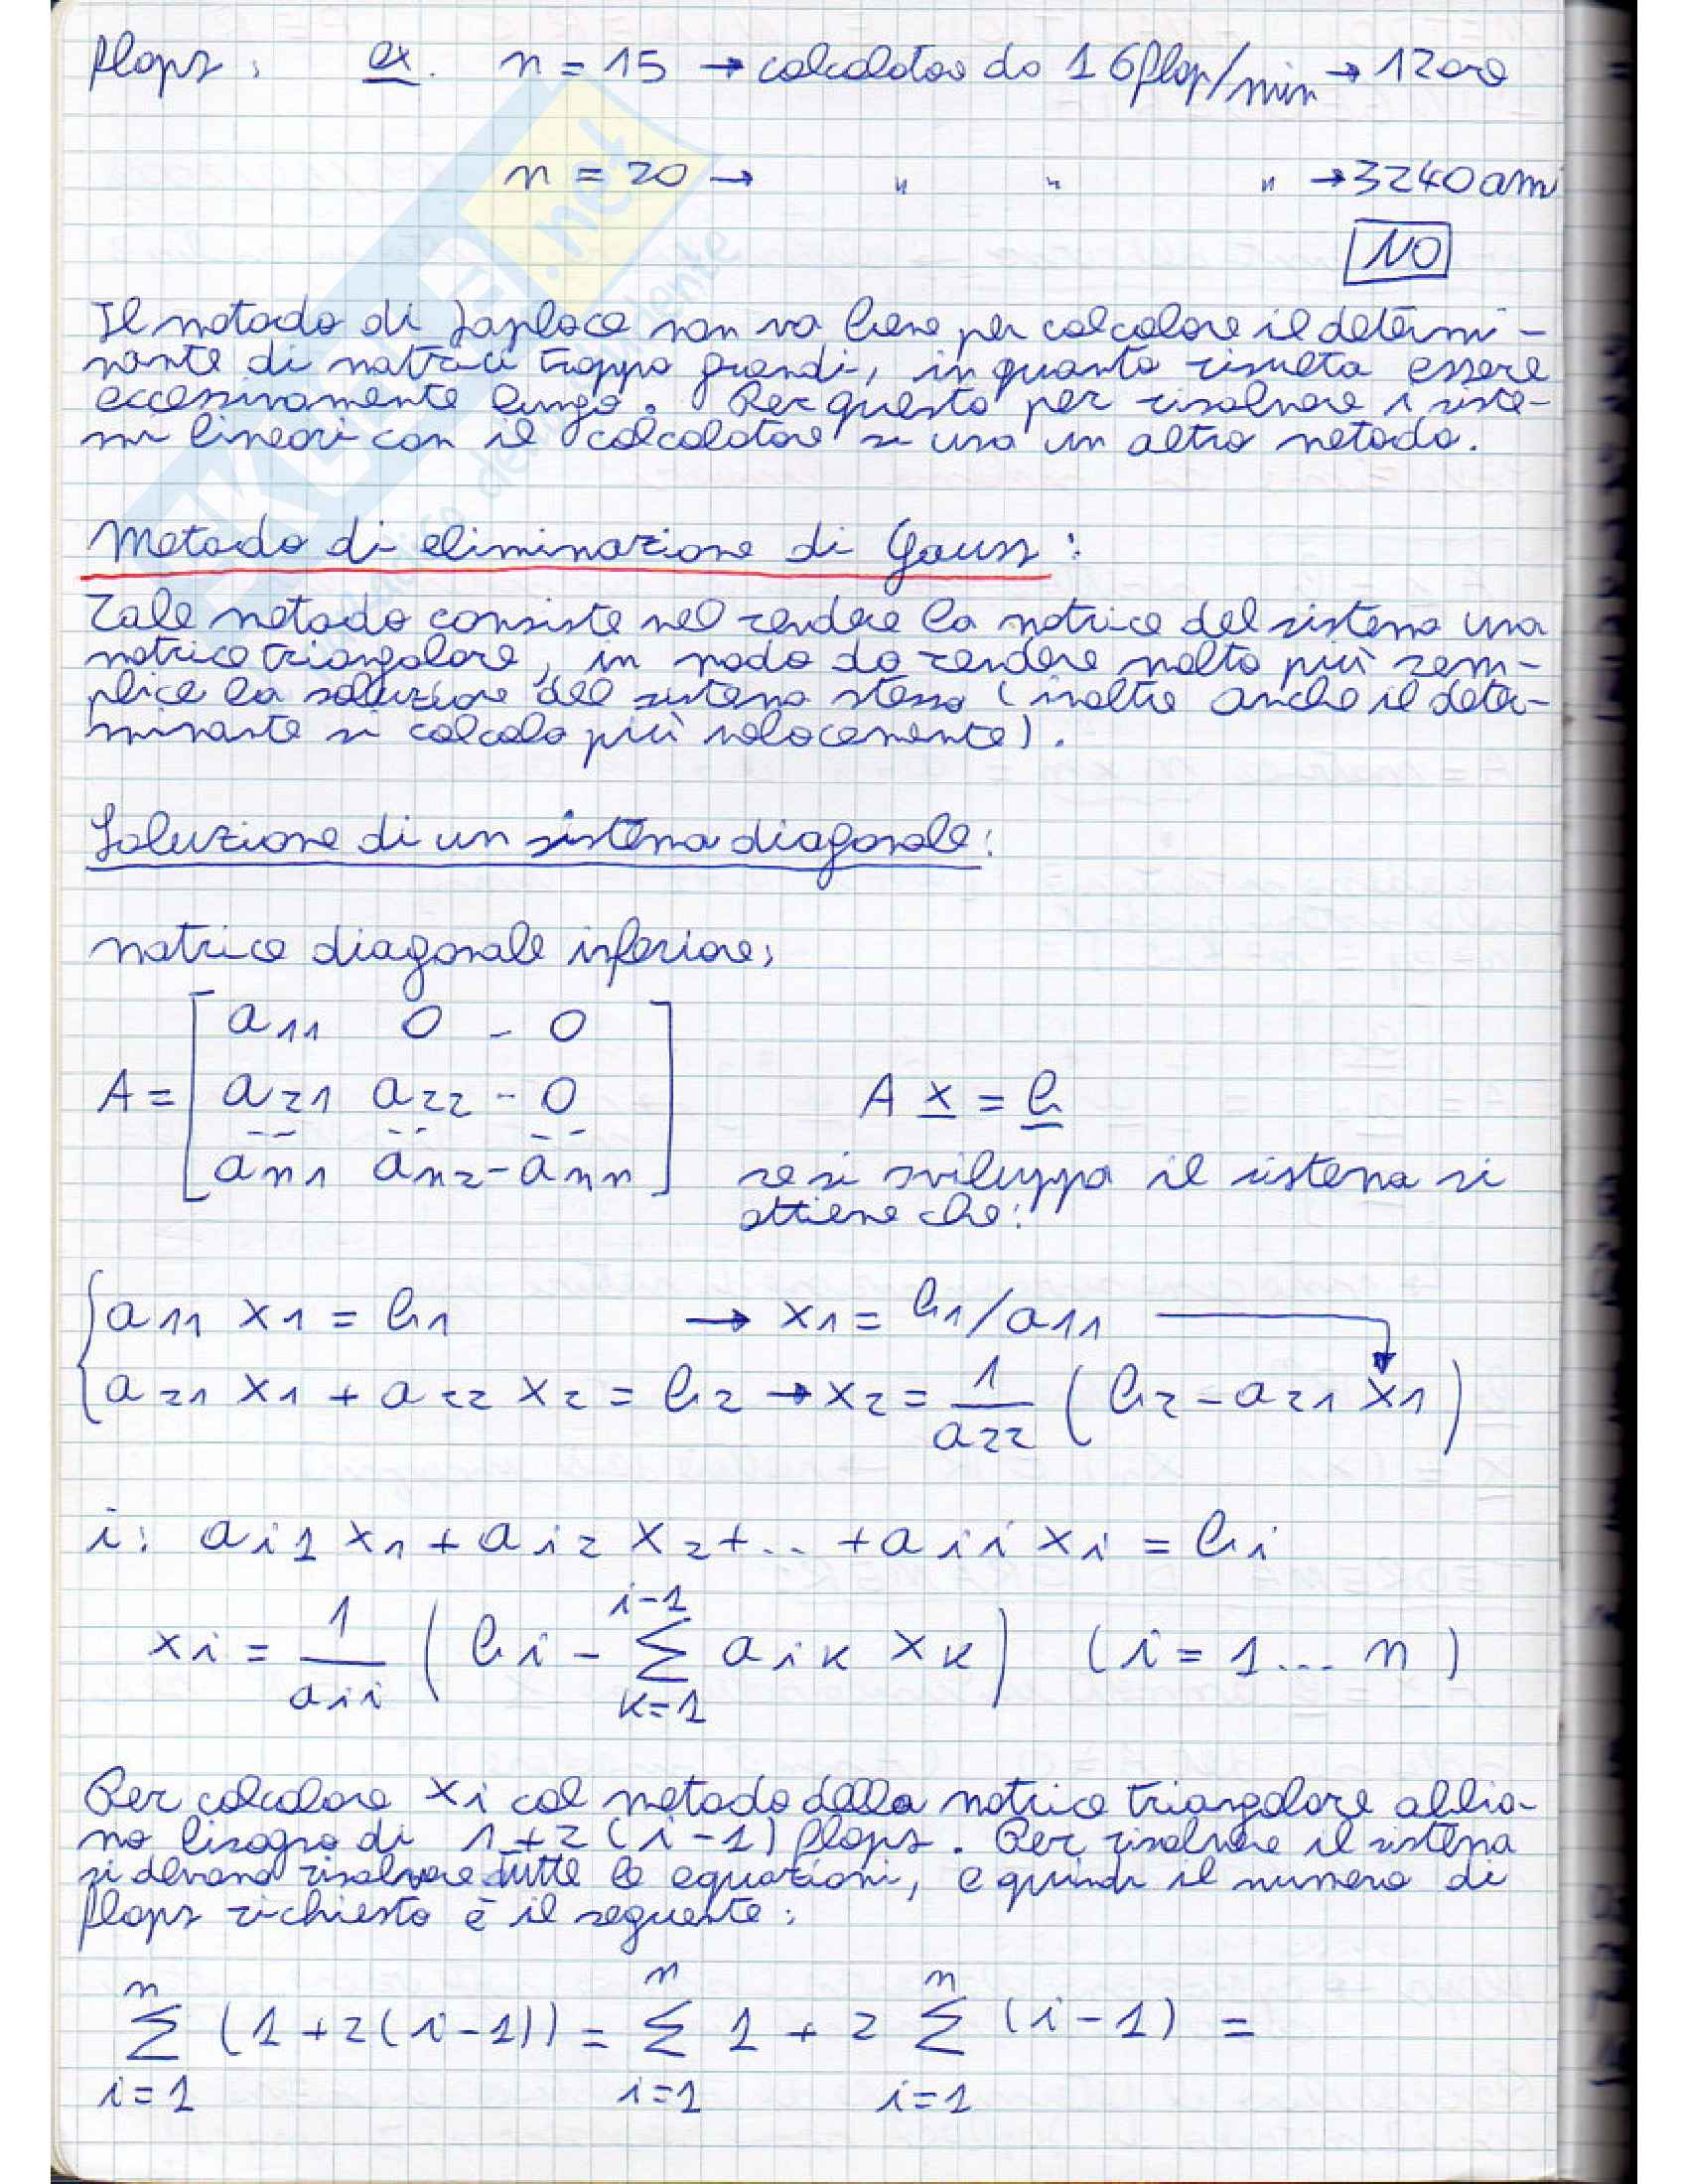 flops: ex. n = 15 → calcolatore da 1 Gflop/min → 12 ore
n = 20 → " " " → 3240 anni
NO
Il metodo di Laplace non va bene per calcolare il determi-
nante di matrici troppo grandi, in quanto risulta essere
eccessivamente lungo. Per questo per risolvere i siste-
mi lineari con il calcolatore si usa un altro metodo.
Metodo di eliminazione di Gauss:
Tale metodo consiste nel rendere la matrice del sistema una
matrice triangolare, in modo da rendere molto più sem-
plice la soluzione del sistema stesso (inoltre anche il deter-
minante si calcola più velocemente).
Soluzione di un sistema diagonale:
matrice diagonale inferiore:
a11 0 - 0
A = a21 a22 - 0 A x = b
an1 an2 - ann se si sviluppa il sistema si
ottiene che:
a11 x1 = b1 → x1 = b1/a11
a21 x1 + a22 x2 = b2 → x2 = 1/a22 (b2 - a21 x1)
i: ai1 x1 + ai2 x2 + ... + aii xi = bi
xi = 1/aii (bi - ∑_{k=1}^{i-1} aik xk) (i = 1 ... n)
Per calcolare xi col metodo della matrice triangolare abbia-
mo bisogno di 1+2(i-1) flops. Per risolvere il sistema
si devono risolvere tutte le equazioni, e quindi il numero di
flops richiesto è il seguente:
∑_{i=1}^{n} (1+2(i-1)) = ∑_{i=1}^{n} 1 + 2 ∑_{i=1}^{n} (i-1) =
SKUOLA.net